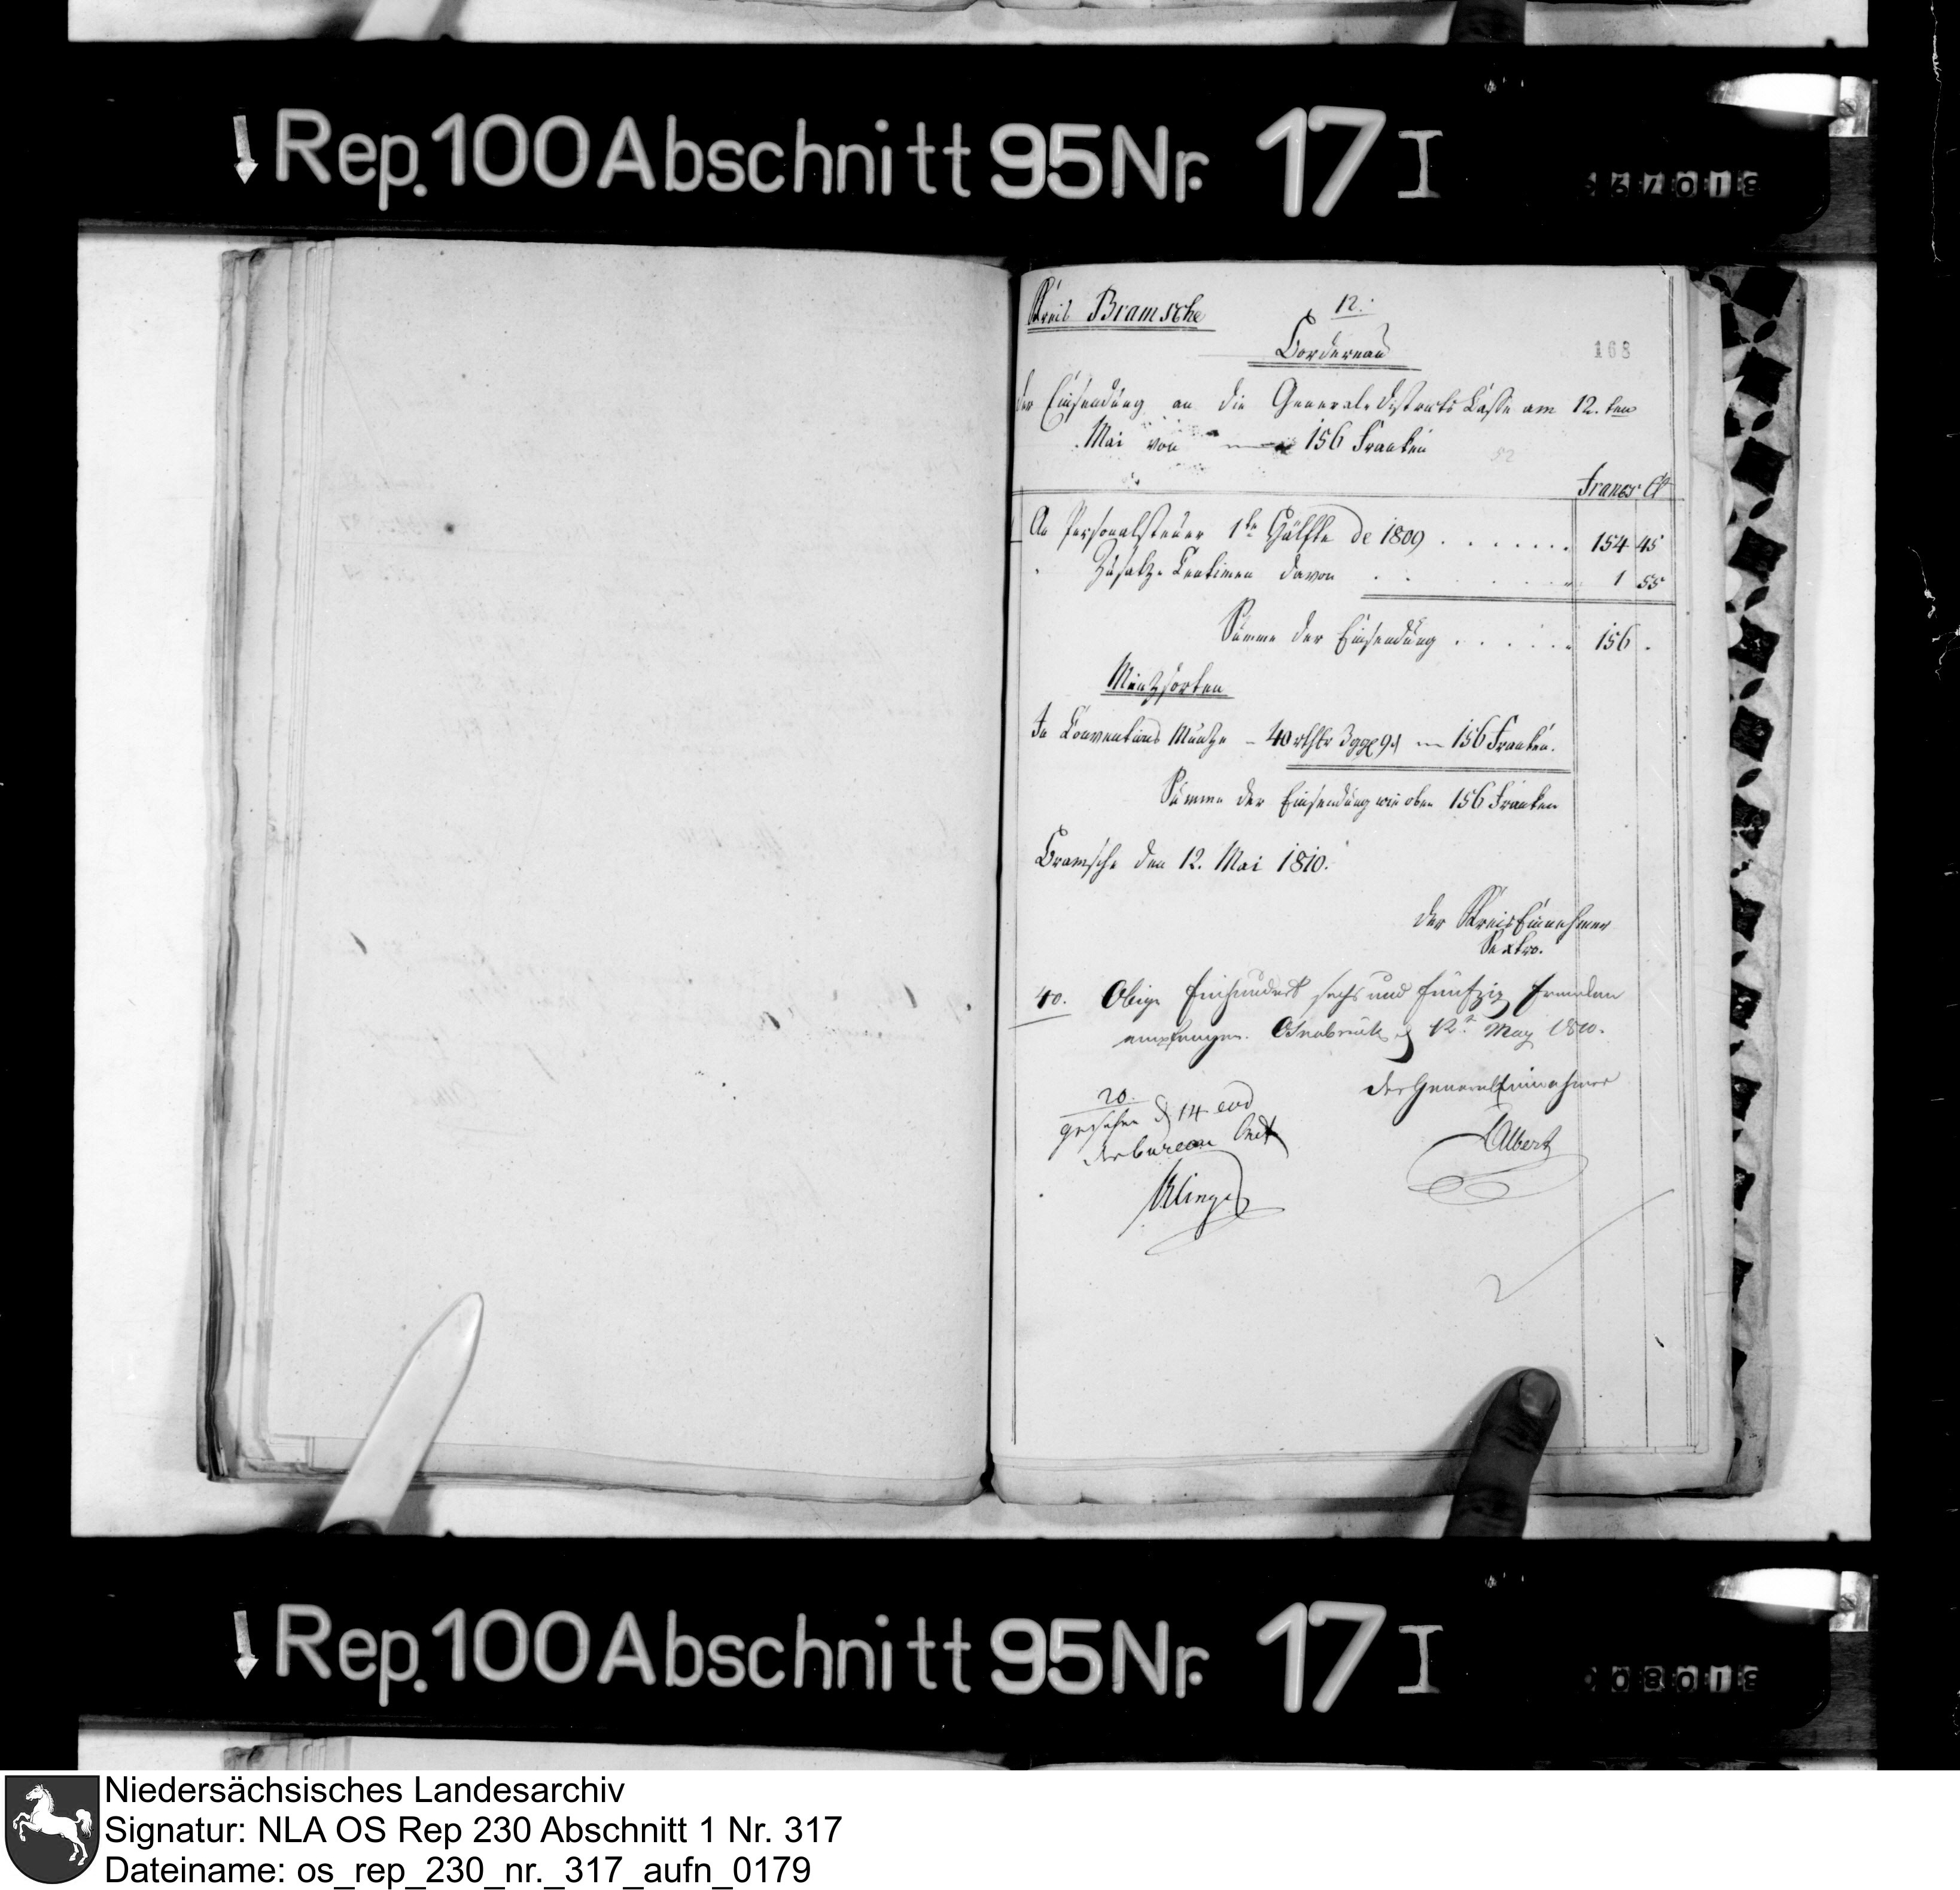 Rep. 100 Abschnitt 95 Nr. 17 I
Kreis Bramsche
12.
Bordereau
168
der Einsendung an die General-Districts Casse am 12.ten
Mai von 156 Franken
52
Francs Ct
An Personalsteuer 1te Hälfte de 1809 . . . . . . . 154 45
Zusatz-Centimen davon . . . . . . 1 55
Summe der Einsendung . . . . . . 156 .
Müntzsorten
In Conventions Müntze - 40 rthlr 3 ggr 9 d 156 Franken.
Summe der Einsendung wie oben 156 Franken
Bramsche den 12. Mai 1810.
der KreisEinnehmer
Sextro.
40. Obige Einhundert sechs und fünfzig Franken
empfangen. Osnabrück d 12t May 1810.
der GeneralEinnehmer
Albert
20.
gesehen d 14 eod
der bureau
Klinge
Rep. 100 Abschnitt 95 Nr. 17 I
Niedersächsisches Landesarchiv
Signatur: NLA OS Rep 230 Abschnitt 1 Nr. 317
Dateiname: os_rep_230_nr._317_aufn_0179